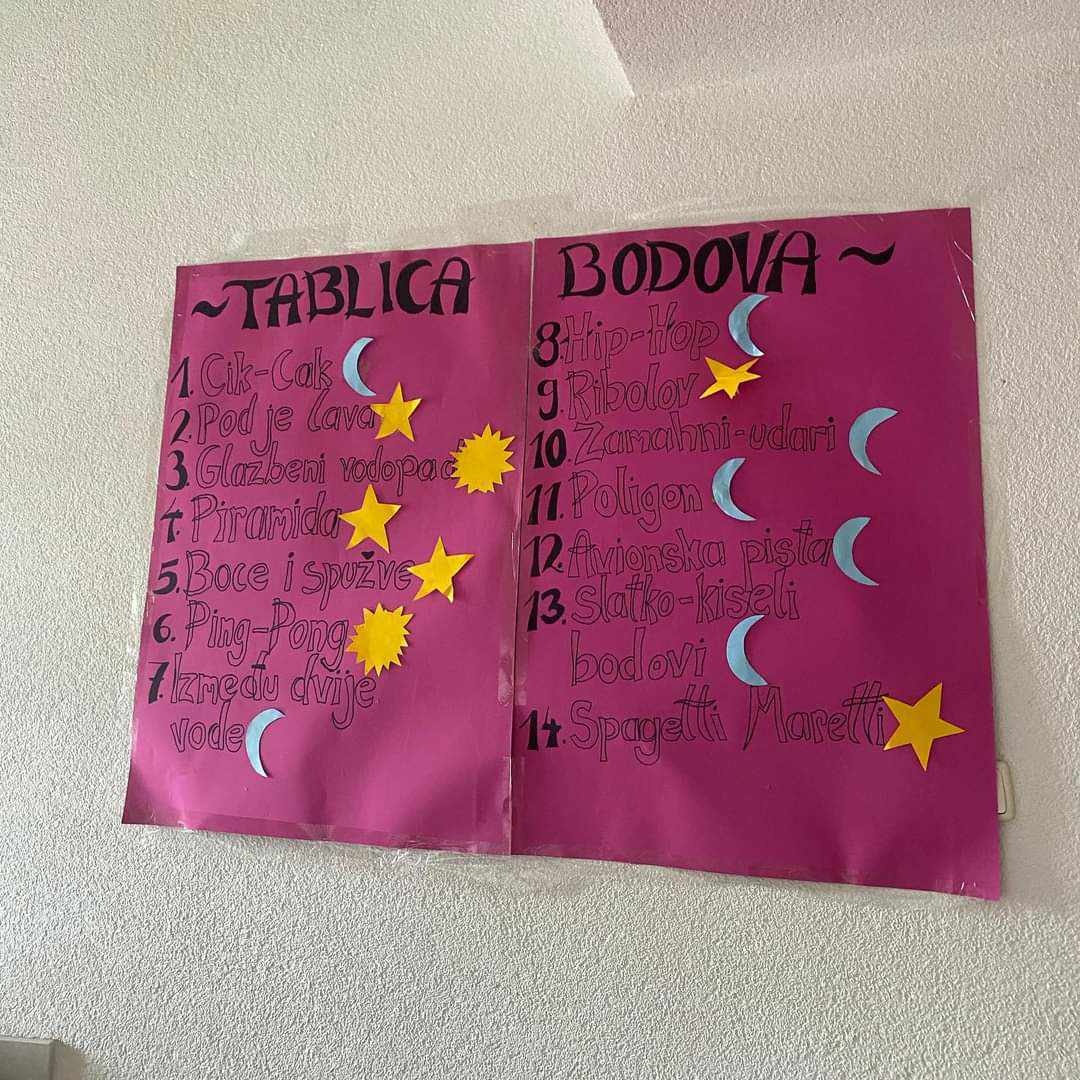 ~TABLICA BODOVA~
1. Cik-Cak
2. Pod je lava
3. Glazbeni vodopad
4. Piramida
5. Boce i spužve
6. Ping-Pong
7. Između dvije
vode
8. Hip-Hop
9. Ribolov
10. Zamahni-udari
11. Poligon
12. Avionska pista
13. Slatko-kiseli
bodovi
14. Spagetti Maretti